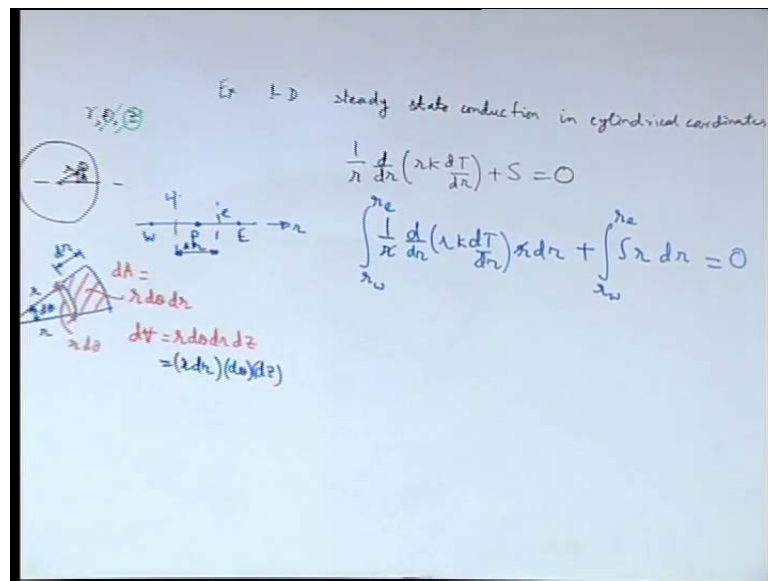 Ex 1-D steady state conduction in cylindrical coordinates
r, θ, z
1/r d/dr (rk dT/dr) + S = 0
∫_{r_w}^{r_e} 1/r d/dr (rk dT/dr) r dr + ∫_{r_w}^{r_e} S r dr = 0
e
W P E → r
Δr
dr
r dθ
r
r dθ
dA =
r dθ dr
dV = r dθ dr dz
= (r dr)(dθ)(dz)